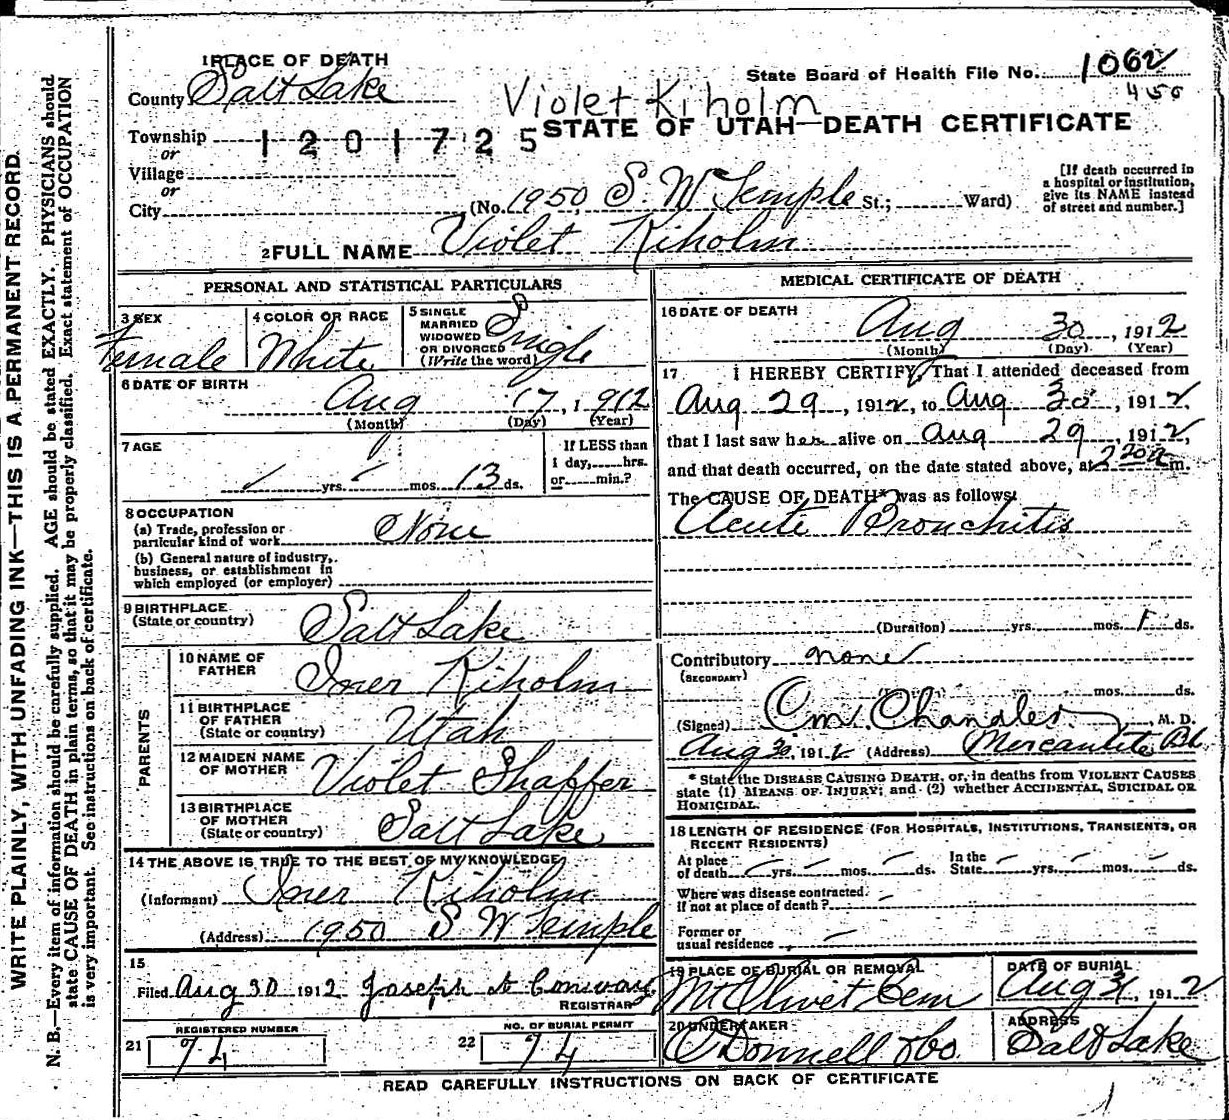 WRITE PLAINLY, WITH UNFADING INK—THIS IS A PERMANENT RECORD.
N. B.—Every item of information should be carefully supplied. AGE should be stated EXACTLY. PHYSICIANS should
state CAUSE OF DEATH in plain terms, so that it may be properly classified. Exact statement of OCCUPATION
is very important. See instructions on back of certificate.
1 PLACE OF DEATH
County Salt Lake
Township
or
Village
or
City
1201725
State Board of Health File No. 1062
450
Violet Kiholm
STATE OF UTAH—DEATH CERTIFICATE
(No. 1950 S. W Temple St.; Ward)
[If death occurred in
a hospital or institution,
give its NAME instead
of street and number.]
2 FULL NAME Violet Kiholm
PERSONAL AND STATISTICAL PARTICULARS
3 SEX
Female
4 COLOR OR RACE
White
5 SINGLE
MARRIED
WIDOWED
OR DIVORCED
(Write the word)
Single
6 DATE OF BIRTH
Aug 17, 1912
(Month) (Day) (Year)
7 AGE
yrs. mos. 13 ds.
If LESS than
1 day, hrs.
or min.?
8 OCCUPATION
(a) Trade, profession or
particular kind of work None
(b) General nature of industry,
business, or establishment in
which employed (or employer)
9 BIRTHPLACE
(State or country) Salt Lake
PARENTS
10 NAME OF
FATHER Imer Kiholm
11 BIRTHPLACE
OF FATHER
(State or country) Utah
12 MAIDEN NAME
OF MOTHER Violet Shaffer
13 BIRTHPLACE
OF MOTHER
(State or country) Salt Lake
14 THE ABOVE IS TRUE TO THE BEST OF MY KNOWLEDGE
(Informant) Imer Kiholm
(Address) 1950 S W Temple
15
Filed Aug 30 1912 Joseph Conway
REGISTRAR
21 REGISTERED NUMBER
74
22 NO. OF BURIAL PERMIT
74
MEDICAL CERTIFICATE OF DEATH
16 DATE OF DEATH
Aug 30, 1912
(Month) (Day) (Year)
17 I HEREBY CERTIFY, That I attended deceased from
Aug 29, 1912, to Aug 30, 1912,
that I last saw her alive on Aug 29, 1912,
and that death occurred, on the date stated above, at 2 20 a m.
The CAUSE OF DEATH* was as follows:
Acute Bronchitis
(Duration) yrs. mos. 1 ds.
Contributory none
(SECONDARY)
mos. ds.
(Signed) C M Chandler, M. D.
Aug 30, 1912 (Address) Mercantile Bl
* State the DISEASE CAUSING DEATH, or, in deaths from VIOLENT CAUSES
state (1) MEANS OF INJURY; and (2) whether ACCIDENTAL, SUICIDAL OR
HOMICIDAL.
18 LENGTH OF RESIDENCE (FOR HOSPITALS, INSTITUTIONS, TRANSIENTS, OR
RECENT RESIDENTS)
At place
of death yrs. mos. ds. In the
State yrs. mos. ds.
Where was disease contracted.
If not at place of death?
Former or
usual residence
19 PLACE OF BURIAL OR REMOVAL
Mt Olivet Cem
DATE OF BURIAL
Aug 31, 1912
20 UNDERTAKER
O'Donnell & Co.
ADDRESS
Salt Lake
READ CAREFULLY INSTRUCTIONS ON BACK OF CERTIFICATE